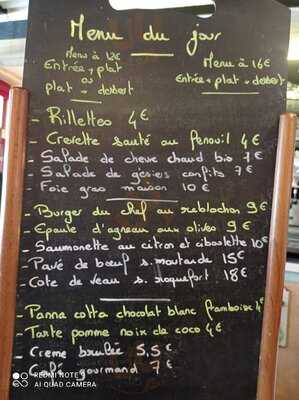 Menu du jour
Menu à 12€
Entrée + plat
ou
plat + dessert
Menu à 16€
Entrée + plat + dessert
- Rillettes 4€
- Crevette sauté au fenouil 4€
- Salade de chèvre chaud bio 7€
- Salade de gésiers confits 7€
- Foie gras maison 10€
- Burger du chef au reblochon 9€
- Epaule d'agneau aux olives 9€
- Saumonette au citron et ciboulette 10€
- Pavé de boeuf s. moutarde 15€
- Cote de veau s. roquefort 18€
- Panna cotta chocolat blanc framboise 4€
- Tarte pomme noix de coco 4€
- Creme brulée 5,5€
- Café gourmand 7€
REDMI NOTE
AI QUAD CAMERA